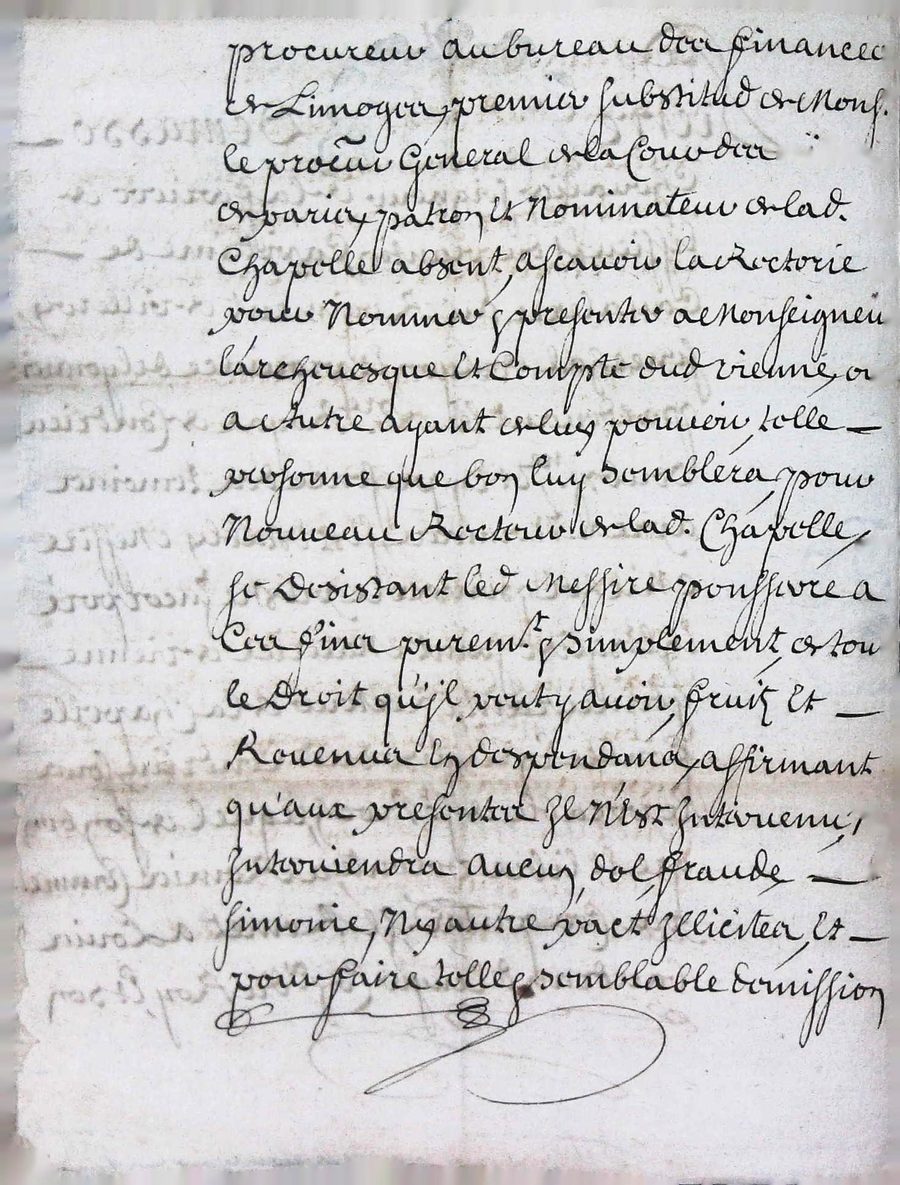 procureur au bureau des finances
de Limoges, premier substitud de Mons.
le procũr General de la Cour des
de paris, patron Et Nominateur de lad.
Chapelle absent, ascavoir la Rectorie
pour Nommer & presenter a Monseigneu
l'archevesque Et Compte dud vienne, ou
a Autre ayant de luy pouvoir, telle —
personne que bon luy Semblera, pour
Nouveau Recteur de lad. Chapelle,
se Desistant led Messire a
Ces fins purem.t & Simplement, de tou
le Droit qu'jl peut y avoir, fruitz Et —
Revenus En despendans, affirmant
qu'aux presentes Jl N'Est Jntervenu,
Jnterviendra aucun, dol, fraude —
simonie, Ny autre pact Jllicites, Et —
pour faire telle & Semblable demission